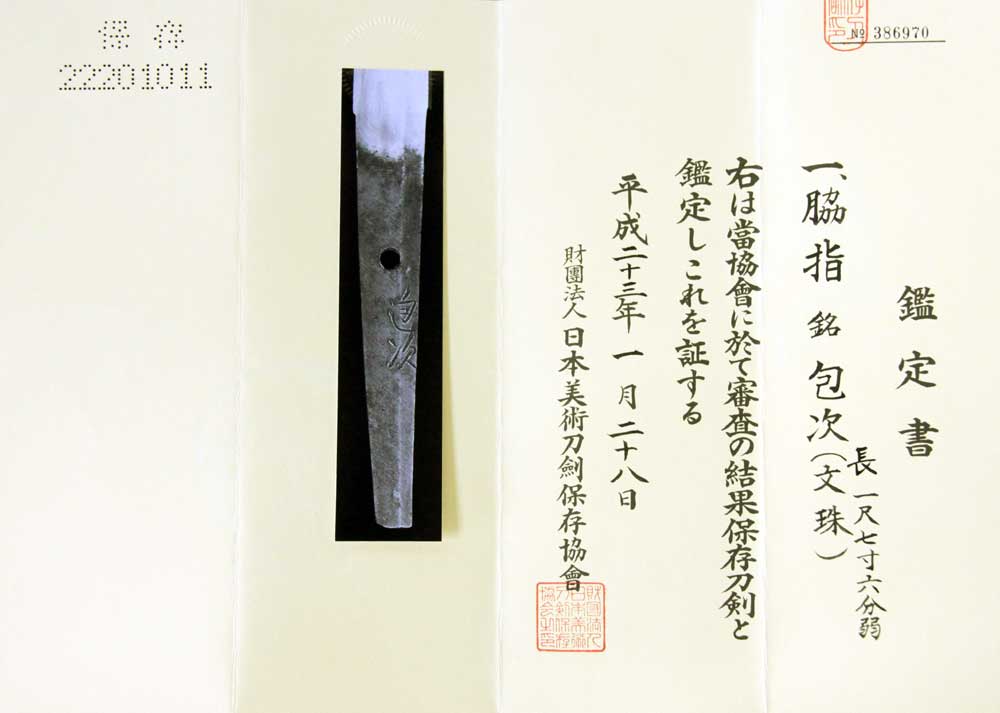 № 386970
鑑定書
一、脇指 銘 包次(文珠)
長一尺七寸六分弱
右は當協會に於て審査の結果保存刀剣と
鑑定しこれを証する
平成二十三年一月二十八日
財團法人日本美術刀劍保存協會
保存
22201011
包次